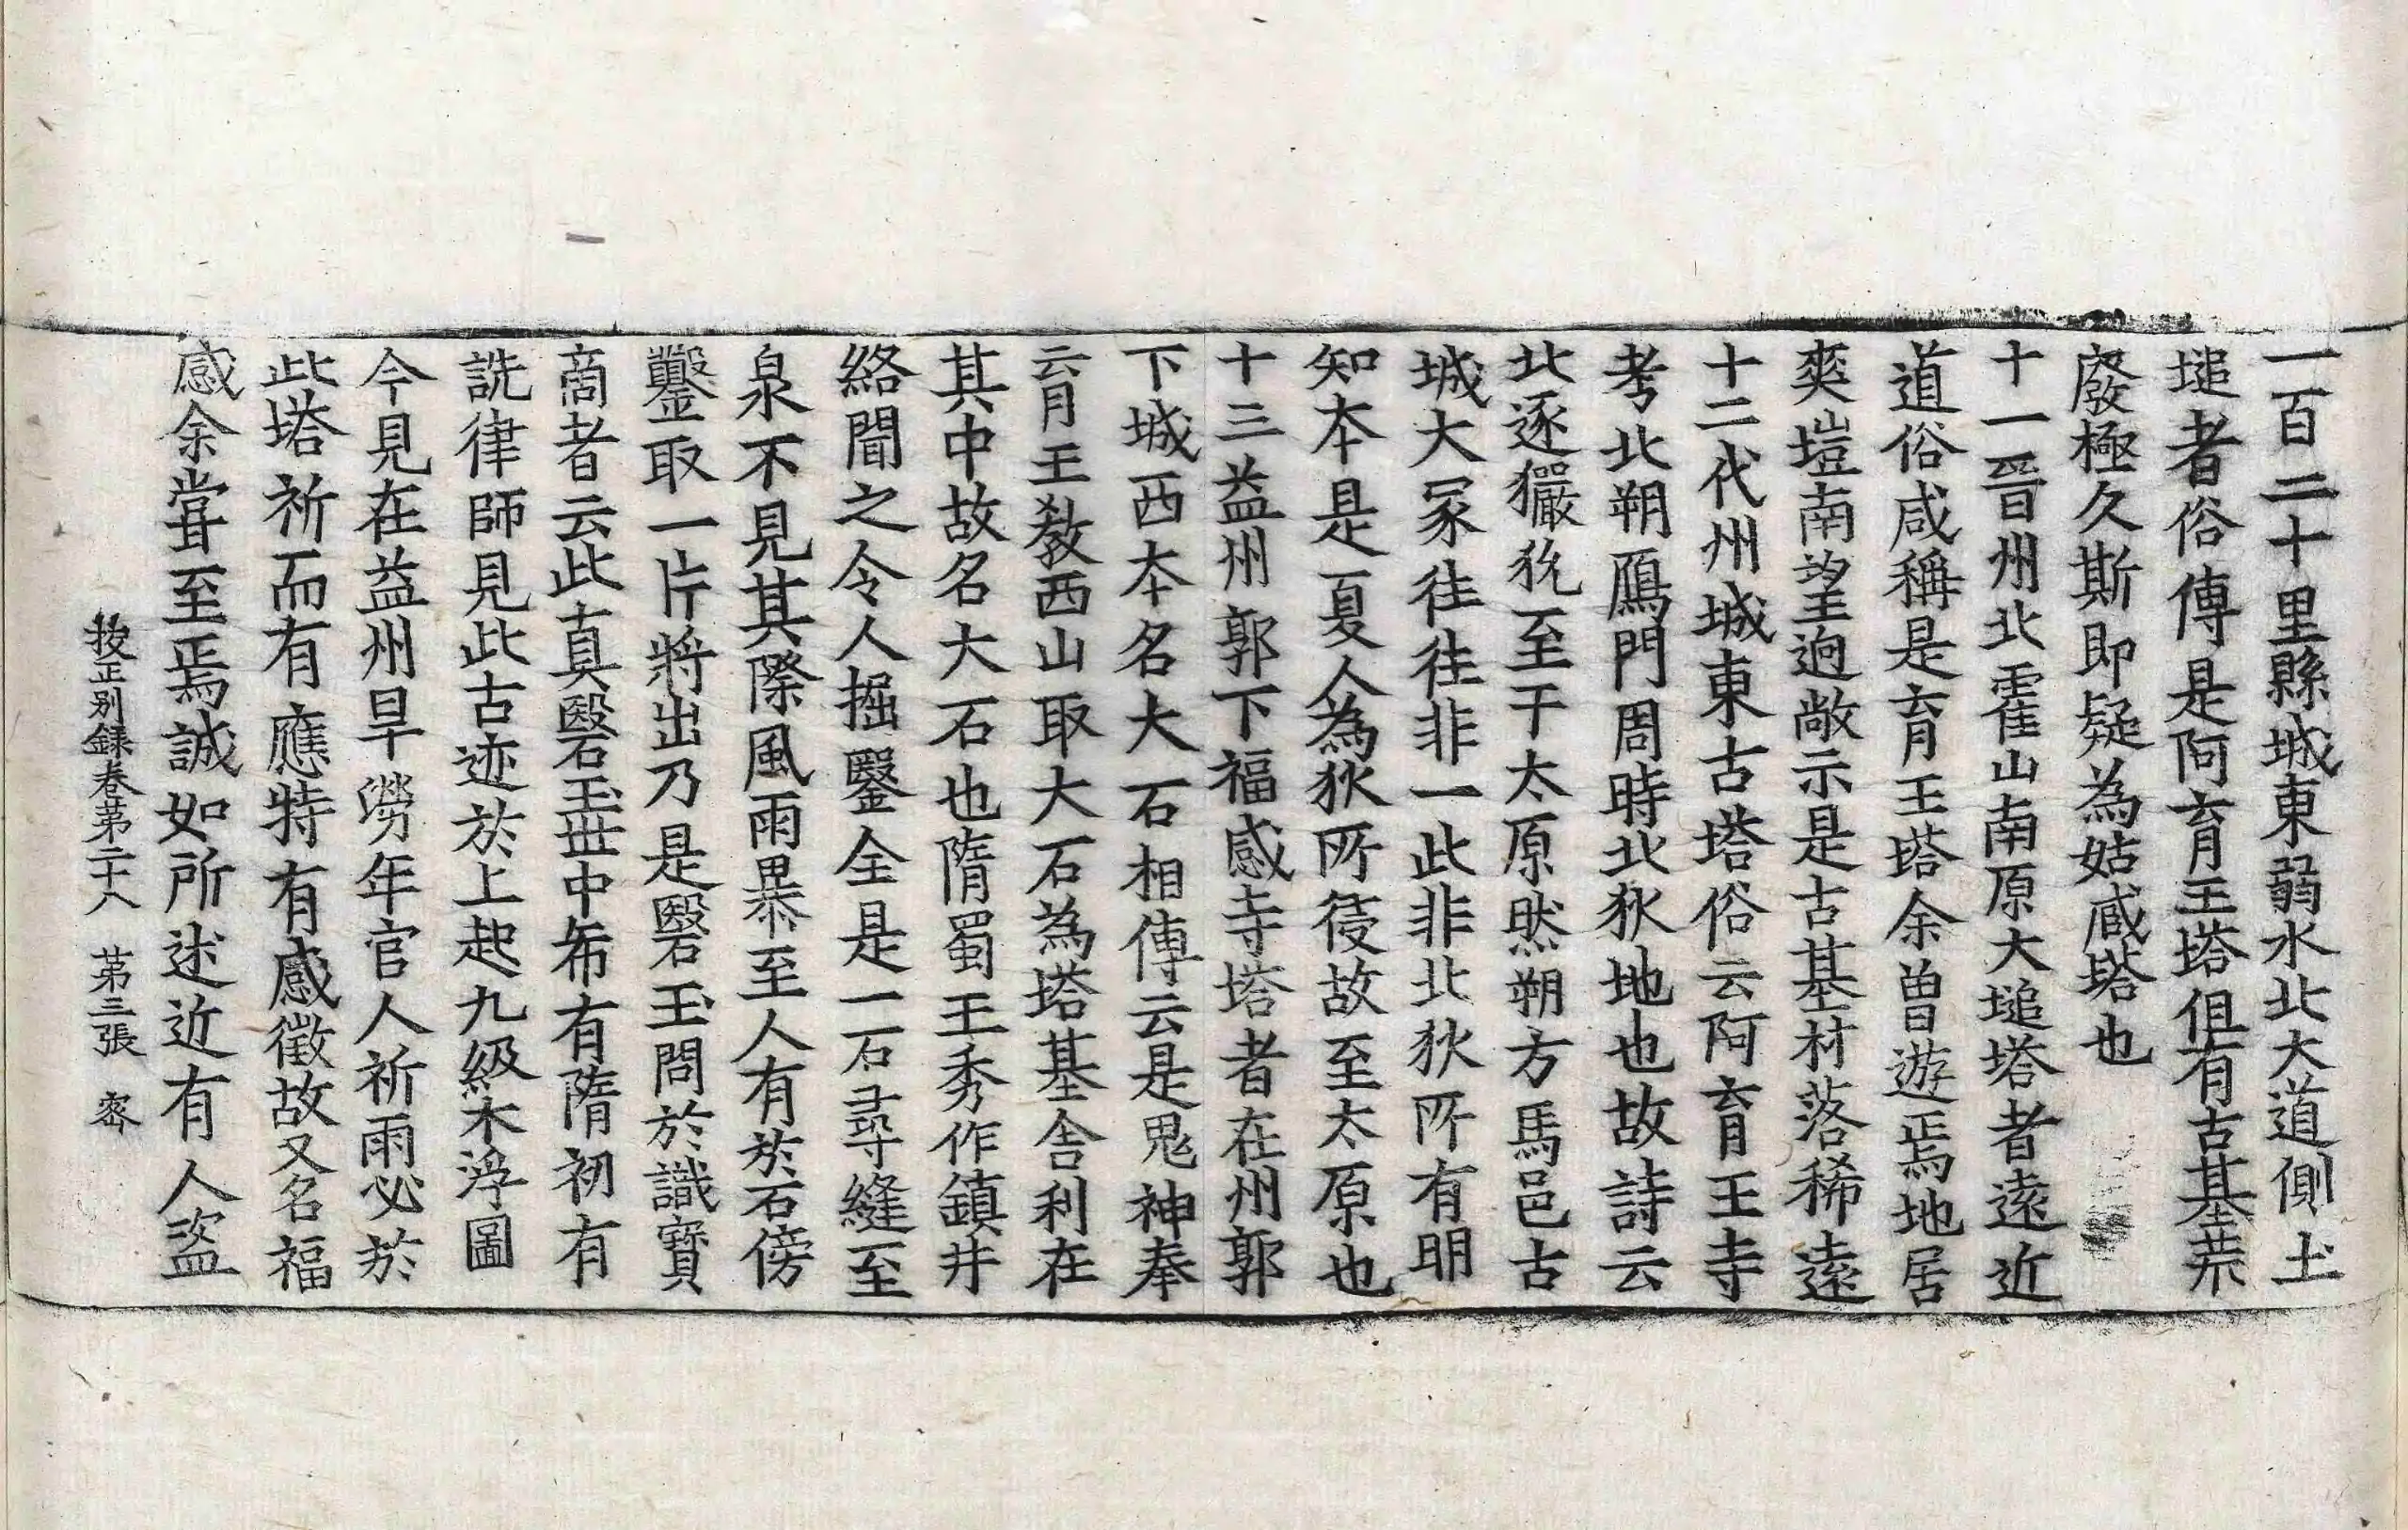 一百二十里縣城東弱水北大道側土
塠者俗傳是阿育王塔但有古基荒
廢極久斯即疑為姑臧塔也
十一晉州北霍山南原大塠塔者遠近
道俗咸稱是育王塔余曾遊焉地居
爽塏南望迥敞示是古基材落稀遠
十二代州城東古塔俗云阿育王寺
考北朔鴈門周時北狄地也故詩云
北逐玁狁至于太原然朔方馬邑古
城大冢往往非一此非北狄所有明
知本是夏人為狄所侵故至太原也
十三益州郭下福感寺塔者在州郭
下城西本名大石相傳云是鬼神奉
育王教西山取大石為塔基舍利在
其中故名大石也隋蜀王秀作鎮井
絡聞之令人掘鑿全是一石尋縫至
泉不見其際風雨暴至人有於石傍
鑿取一片將出乃是瑿玉問於識寶
商者云此真瑿玉世中希有隋初有
詵律師見此古迹於上起九級木浮圖
今見在益州旱澇年官人祈雨必於
此塔祈而有應特有感徵故又名福
感余嘗至焉誠如所述近有人盜
挍正別録卷第二十八　第三張　密